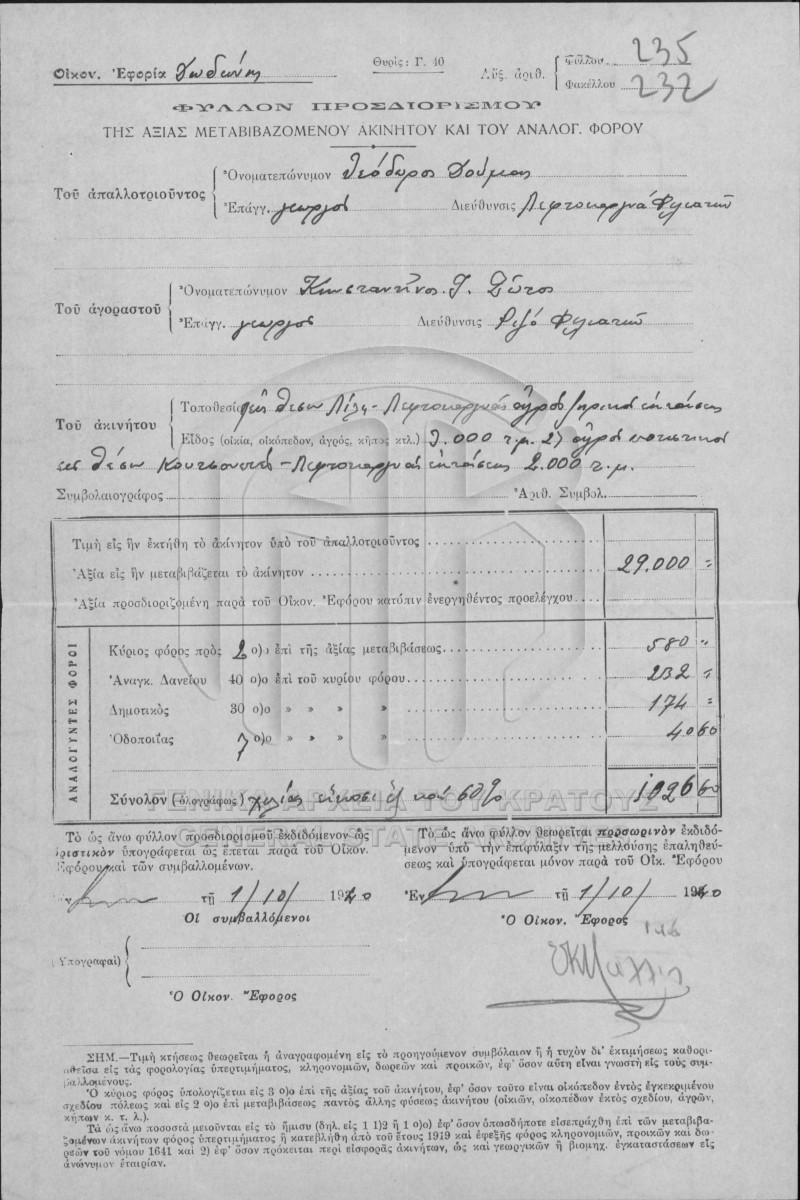 Οἰκον. Ἐφορία Δωδώνης
Θυρίς: Γ. 40
Αὔξ. ἀριθ.
Φύλλου 235
Φακέλλου 232
ΦΥΛΛΟΝ ΠΡΟΣΔΙΟΡΙΣΜΟΥ
ΤΗΣ ΑΞΙΑΣ ΜΕΤΑΒΙΒΑΖΟΜΕΝΟΥ ΑΚΙΝΗΤΟΥ ΚΑΙ ΤΟΥ ΑΝΑΛΟΓ. ΦΟΡΟΥ
Τοῦ ἀπαλλοτριοῦντος
Ὀνοματεπώνυμον Θεόδωρος
Ἐπάγγ. γεωργός Διεύθυνσις Λεπτοκαρυά Φιλιατῶν
Τοῦ ἀγοραστοῦ
Ὀνοματεπώνυμον Κωνσταντῖνος
Ἐπάγγ. γεωργός Διεύθυνσις Φιλιατῶν
Τοῦ ἀκινήτου
Τοποθεσία θέσιν Λεπτοκαρυᾶς ἀγρός ἐκτάσεως
Εἶδος (οἰκία, οἰκόπεδον, ἀγρός, κῆπος κτλ.) .000 τ.μ. 2) ἀγρός ποτιστικός
εἰς θέσιν Λεπτοκαρυᾶς ἐκτάσεως 2.000 τ.μ.
Συμβολαιογράφος Ἀριθ. Συμβολ.
Τιμὴ εἰς ἣν ἐκτήθη τὸ ἀκίνητον ὑπὸ τοῦ ἀπαλλοτριοῦντος
Ἀξία εἰς ἣν μεταβιβάζεται τὸ ἀκίνητον 29.000 =
Ἀξία προσδιοριζομένη παρὰ τοῦ Οἰκον. Ἐφόρου κατόπιν ἐνεργηθέντος προελέγχου
ΑΝΑΛΟΓΟΥΝΤΕΣ ΦΟΡΟΙ
Κύριος φόρος πρὸς 2 ο)ο ἐπὶ τῆς ἀξίας μεταβιβάσεως 580 "
Ἀναγκ. Δανείου 40 ο)ο ἐπὶ τοῦ κυρίου φόρου 232 "
Δημοτικὸς 30 ο)ο » » » » 174 =
Ὁδοποιΐας 7 ο)ο » » » » 40 60
Σύνολον (ὁλογράφως) χιλίας εἴκοσι ἓξ καὶ 60% 1026 60
ΓΕΝΙΚΑ ΑΡΧΕΙΑ ΤΟΥ ΚΡΑΤΟΥΣ
Τὸ ὡς ἄνω φύλλον προσδιορισμοῦ ἐκδιδόμενον ὡς
ὁριστικὸν ὑπογράφεται ὡς ἕπεται παρὰ τοῦ Οἰκον.
Ἐφόρου καὶ τῶν συμβαλλομένων.
τῇ 1/10/1940
Οἱ συμβαλλόμενοι
(Ὑπογραφαὶ)
Ὁ Οἰκον. Ἔφορος
Τὸ ὡς ἄνω φύλλον θεωρεῖται προσωρινὸν ἐκδιδό-
μενον ὑπὸ τὴν ἐπιφύλαξιν τῆς μελλούσης ἐπαληθεύ-
σεως καὶ ὑπογράφεται μόνον παρὰ τοῦ Οἰκ. Ἐφόρου
Ἐν τῇ 1/10/1940
Ὁ Οἰκον. Ἔφορος
ΣΗΜ.—Τιμὴ κτήσεως θεωρεῖται ἡ ἀναγραφομένη εἰς τὸ προηγούμενον συμβόλαιον ἢ ἡ τυχὸν δι' ἐκτιμήσεως καθορι-
σθεῖσα εἰς τὰς φορολογίας ὑπερτιμήματος, κληρονομιῶν, δωρεῶν καὶ προικῶν, ἐφ' ὅσον αὕτη εἶναι γνωστὴ εἰς τοὺς συμ-
βαλλομένους.
Ὁ κύριος φόρος ὑπολογίζεται εἰς 3 ο)ο ἐπὶ τῆς ἀξίας τοῦ ἀκινήτου, ἐφ' ὅσον τοῦτο εἶναι οἰκόπεδον ἐντὸς ἐγκεκριμένου
σχεδίου πόλεως καὶ εἰς 2 ο)ο ἐπὶ μεταβιβάσεως παντὸς ἄλλης φύσεως ἀκινήτου (οἰκιῶν, οἰκοπέδων ἐκτὸς σχεδίου, ἀγρῶν,
κήπων κ. τ. λ.).
Τὰ ὡς ἄνω ποσοστὰ μειοῦνται εἰς τὸ ἥμισυ (δηλ. εἰς 1 1)2 ἢ 1 ο)ο) ἐφ' ὅσον ὁπωσδήποτε εἰσεπράχθη ἐπὶ τῶν μεταβιβα-
ζομένων ἀκινήτων φόρος ὑπερτιμήματος ἢ κατεβλήθη ἀπὸ τοῦ ἔτους 1919 καὶ ἐφεξῆς φόρος κληρονομιῶν, προικῶν καὶ δω-
ρεῶν τοῦ νόμου 1641 καὶ 2) ἐφ' ὅσον πρόκειται περὶ εἰσφορᾶς ἀκινήτων, ὡς καὶ γεωργικῶν ἢ βιομηχ. ἐγκαταστάσεων εἰς
ἀνώνυμον ἑταιρίαν.